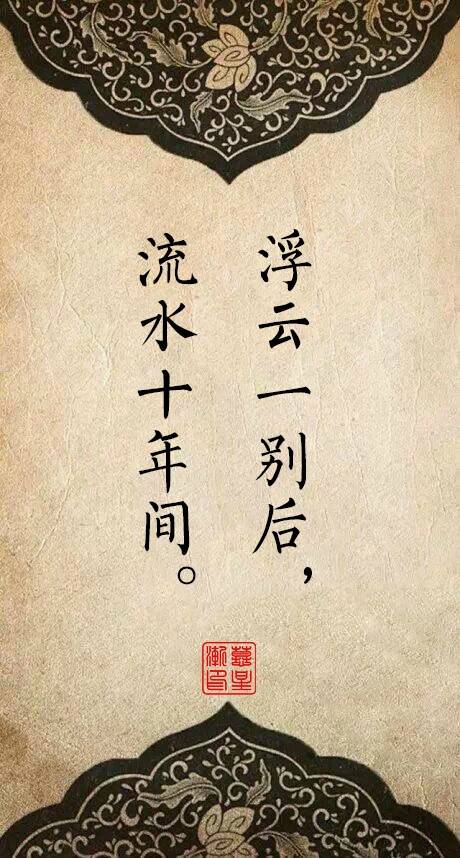 浮云一别后，
流水十年间。